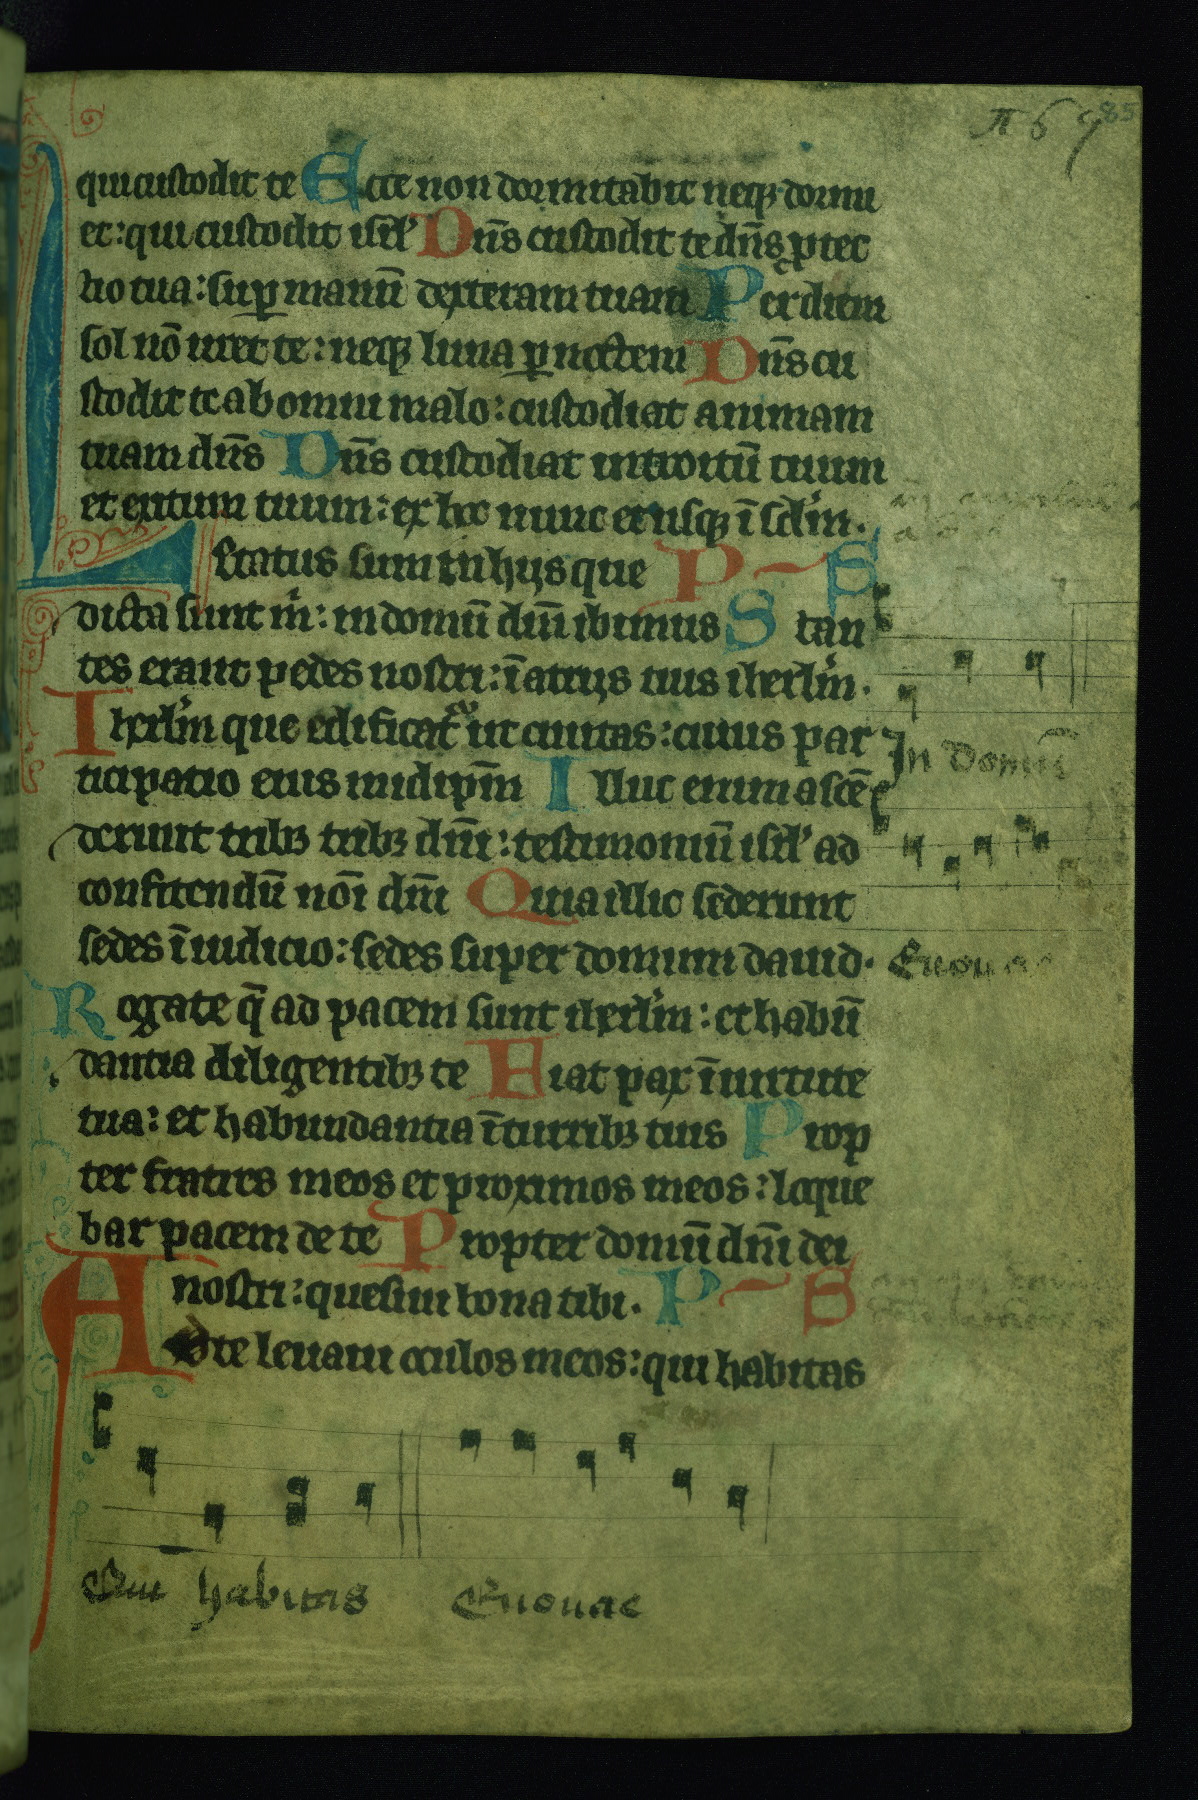 qui custodit te Ecce non dormitabit neqȝ dormi
et: qui custodit isrl' Dn̄s custodit te dn̄s ꝓtec
tio tua: suꝑ manū dexteram tuam Per diem
sol nō uret te: neqȝ luna ꝑ noctem Dn̄s cu
stodit te ab omni malo: custodiat animam
tuam dn̄s Dn̄s custodiat introitū tuum
et exitum tuum: ex hoc nunc et usqȝ ī sclm̄.
Letatus sum in hijs que P S
dicta sunt m̄: in domū dn̄i ibimus S tan
tes erant pedes nostri: ī atrijs tuis iherlm̄.
Iherlm̄ que edificat' ut ciuitas: cuius par
In domū
ticipatio eius in idipm̄ Illuc enim ascē
derunt tribȝ tribȝ dn̄i: testimoniū isrl' ad
confitendū nōi dn̄i Quia illic sederunt
sedes ī iudicio: sedes super domum dauid.
Euouae
Rogate q̄ ad pacem sunt iherlm̄: et habū
dantia diligentibȝ te Fiat pax ī uirtute
tua: et habundantia ī turribȝ tuis Prop
ter fratres meos et proximos meos: loque
bar pacem de te Propter domū dn̄i dei
nostri: quesiui bona tibi. P S
Ad te leuaui oculos meos: qui habitas
Qui habitas Euouae